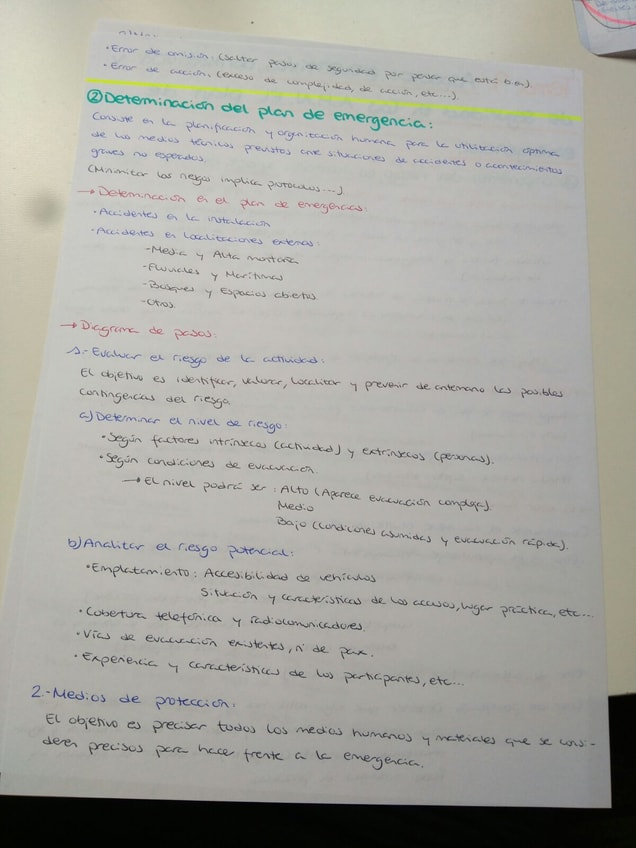 • Error de omisión. (Saltar pasos de seguridad por pensar que está bien).
• Error de acción. (exceso de complejidad, de acción, etc...)
② Determinación del plan de emergencia:
Consiste en la planificación y organización humana para la utilización óptima
de los medios técnicos previstos ante situaciones de accidentes o acontecimientos
graves no esperados.
(Minimizar los riesgos implica protocolos...)
→ Determinación en el plan de emergencias:
• Accidentes en la instalación
• Accidentes en localizaciones externas:
- Media y Alta montaña
- Fluviales y Marítimas
- Bosques y Espacios abiertos
- Otros.
→ Diagrama de pasos:
1.- Evaluar el riesgo de la actividad:
El objetivo es identificar, valorar, localizar y prevenir de antemano las posibles
contingencias del riesgo.
a) Determinar el nivel de riesgo:
• Según factores intrínsecos (actividad) y extrínsecos (personas).
• Según condiciones de evacuación.
→ El nivel podrá ser: Alto (Aparece evacuación compleja).
Medio
Bajo (Condiciones asumidas y evacuación rápida).
b) Analizar el riesgo potencial:
• Emplazamiento: Accesibilidad de vehículos
Situación y características de los accesos, lugar práctica, etc...
• Cobertura telefónica y radiocomunicadores.
• Vías de evacuación existentes, nº de pax.
• Experiencia y características de los participantes, etc...
2.- Medios de protección:
El objetivo es precisar todos los medios humanos y materiales que se consi-
deren precisos para hacer frente a la emergencia.